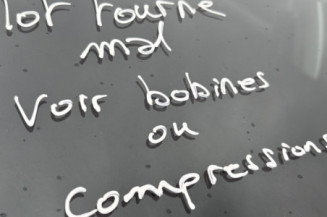 tourne
mal
Voir bobines
ou
Compressions